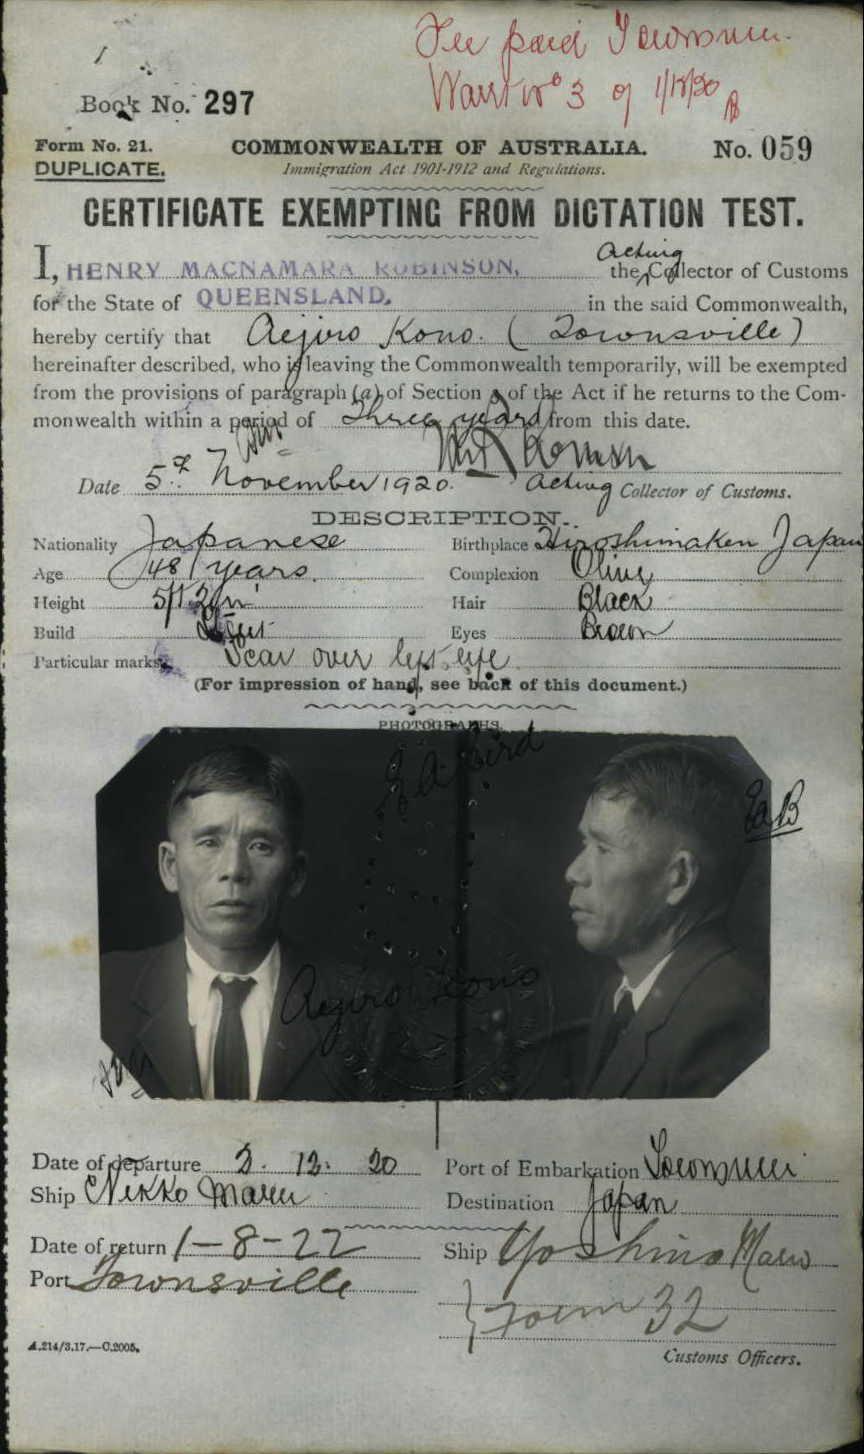 Fee paid Townsville
Warrt No 3 of 1/12/20
Book No. 297
Form No. 21.
COMMONWEALTH OF AUSTRALIA.
No. 059
DUPLICATE.
Immigration Act 1901-1912 and Regulations.
CERTIFICATE EXEMPTING FROM DICTATION TEST.
I, HENRY MACNAMARA ROBINSON, the Acting Collector of Customs
for the State of QUEENSLAND. in the said Commonwealth,
hereby certify that Aejiro Kono. (Townsville)
hereinafter described, who is leaving the Commonwealth temporarily, will be exempted
from the provisions of paragraph (a) of Section 3 of the Act if he returns to the Com-
monwealth within a period of Three years from this date.
Date 5th November 1920. Acting Collector of Customs.
DESCRIPTION.
Nationality Japanese Birthplace Hiroshimaken Japan
Age 48 years. Complexion Olive
Height Hair Black
Build Eyes Brown
Particular marks Scar over left eye
(For impression of hand, see back of this document.)
PHOTOGRAPHS.
Bird
EAB
Aejiro Kono
Date of departure 2. 12. 20 Port of Embarkation Townsville
Ship Nikko Maru Destination Japan
Date of return 1-8-22 Ship Yoshino Maru
Port Townsville
Form 32
A.214/3.17.—C.2005.
Customs Officers.